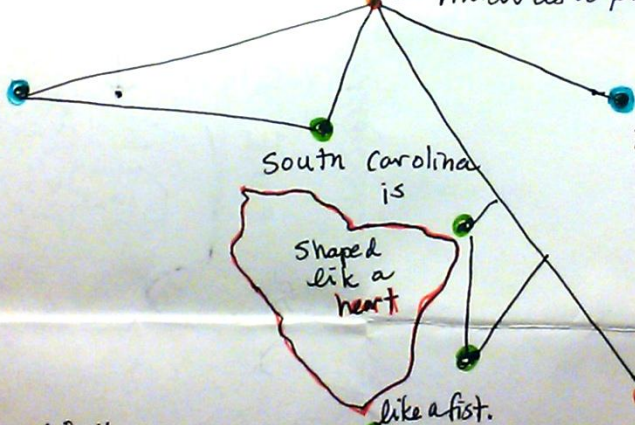 South Carolina
is
shaped
like a
heart
like a fist.